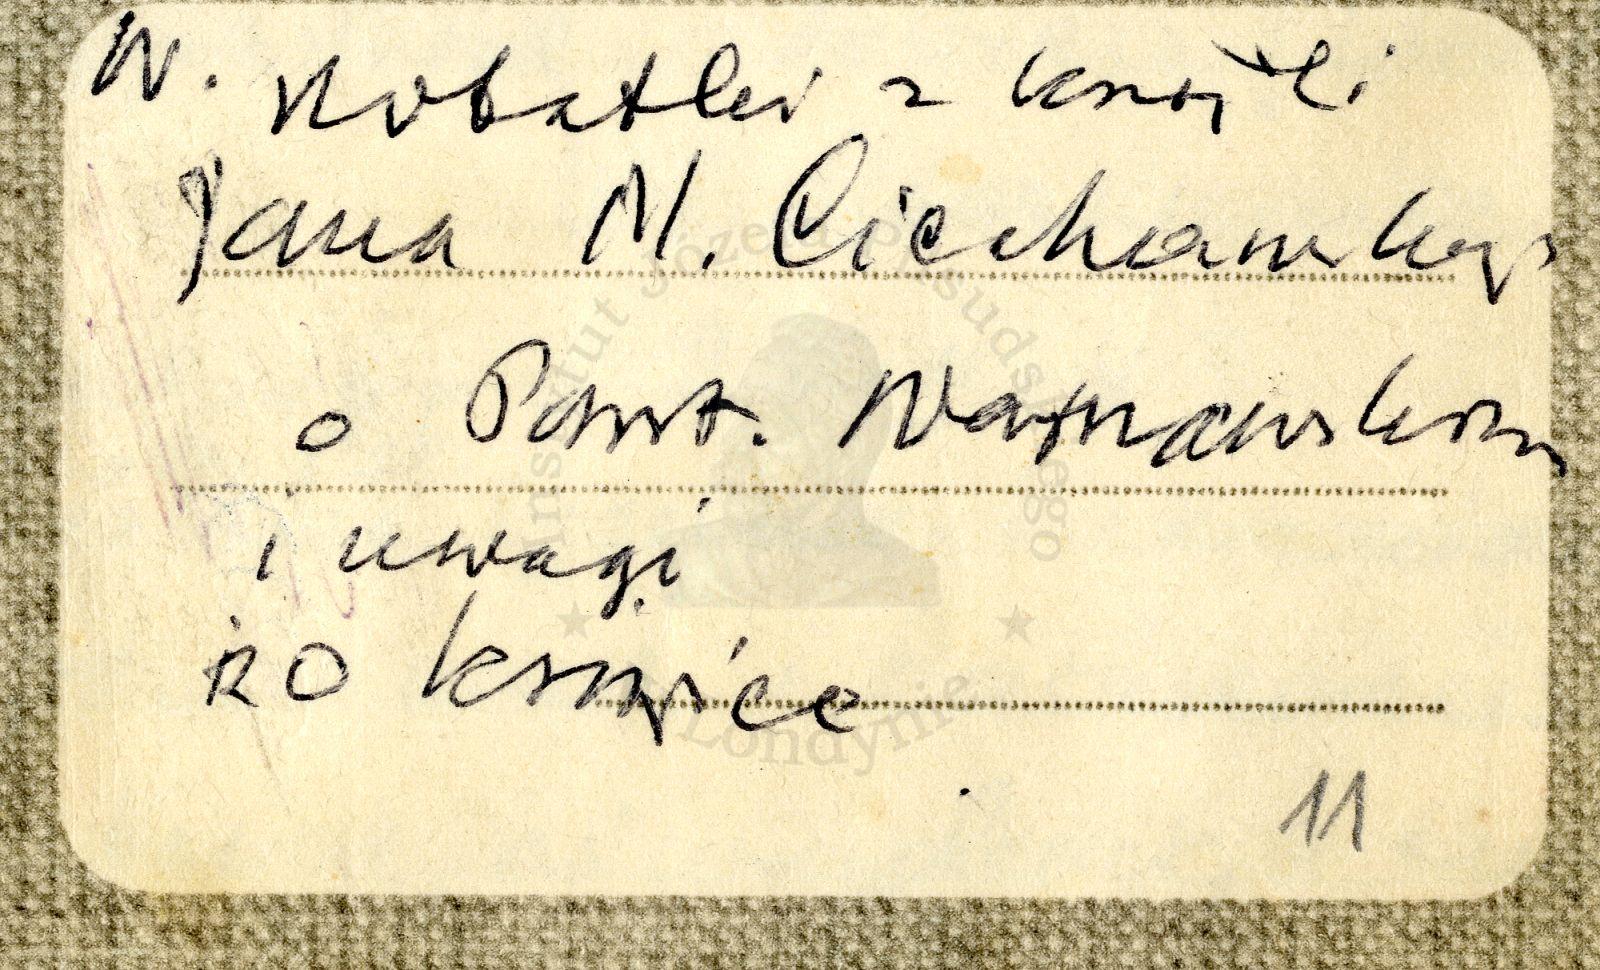 W. Notatki z książki
Jana M. Ciechanowskiego
o Powst. Warszawskim
i uwagi
RO
11
Instytut Józefa Piłsudskiego
Londyn